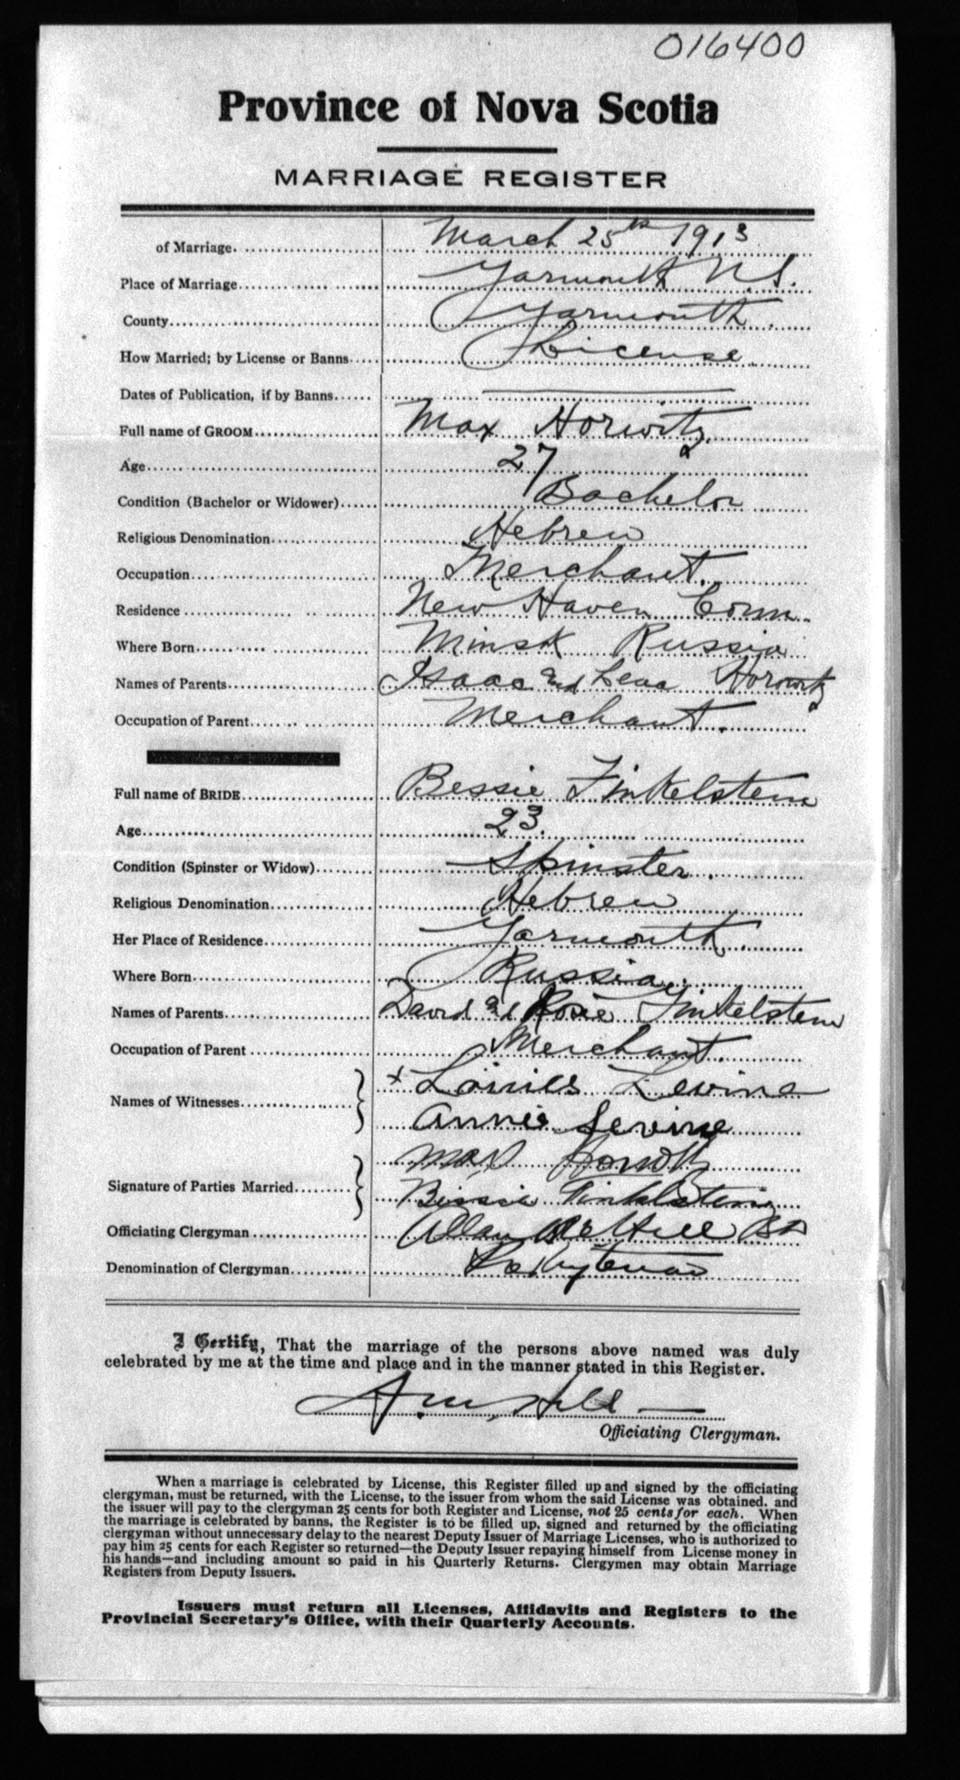 016400
Province of Nova Scotia
MARRIAGE REGISTER
of Marriage. March 25th 1913
Place of Marriage Yarmouth N.S.
County Yarmouth.
How Married; by License or Banns License.
Dates of Publication, if by Banns
Full name of GROOM Max Horwitz
Age 27
Condition (Bachelor or Widower) Bachelor
Religious Denomination Hebrew
Occupation Merchant.
Residence New Haven Conn.
Where Born Minsk Russia
Names of Parents Isaac and Lena Horowitz
Occupation of Parent Merchant.
Full name of BRIDE Bessie Finkelstein
Age 23.
Condition (Spinster or Widow) Spinster.
Religious Denomination Hebrew
Her Place of Residence Yarmouth.
Where Born Russia.
Names of Parents David and Rosie Finkelstein
Occupation of Parent Merchant.
Names of Witnesses x Levine
Annie Levine
Signature of Parties Married Max
Bessie
Officiating Clergyman Allan Hill BD
Denomination of Clergyman Presbyterian
I Certify, That the marriage of the persons above named was duly
celebrated by me at the time and place and in the manner stated in this Register.
A. M. Hill
Officiating Clergyman.
When a marriage is celebrated by License, this Register filled up and signed by the officiating
clergyman, must be returned, with the License, to the issuer from whom the said License was obtained, and
the issuer will pay to the clergyman 25 cents for both Register and License, not 25 cents for each. When
the marriage is celebrated by banns, the Register is to be filled up, signed and returned by the officiating
clergyman without unnecessary delay to the nearest Deputy Issuer of Marriage Licenses, who is authorized to
pay him 25 cents for each Register so returned—the Deputy Issuer repaying himself from License money in
his hands—and including amount so paid in his Quarterly Returns. Clergymen may obtain Marriage
Registers from Deputy Issuers.
Issuers must return all Licenses, Affidavits and Registers to the
Provincial Secretary's Office, with their Quarterly Accounts.